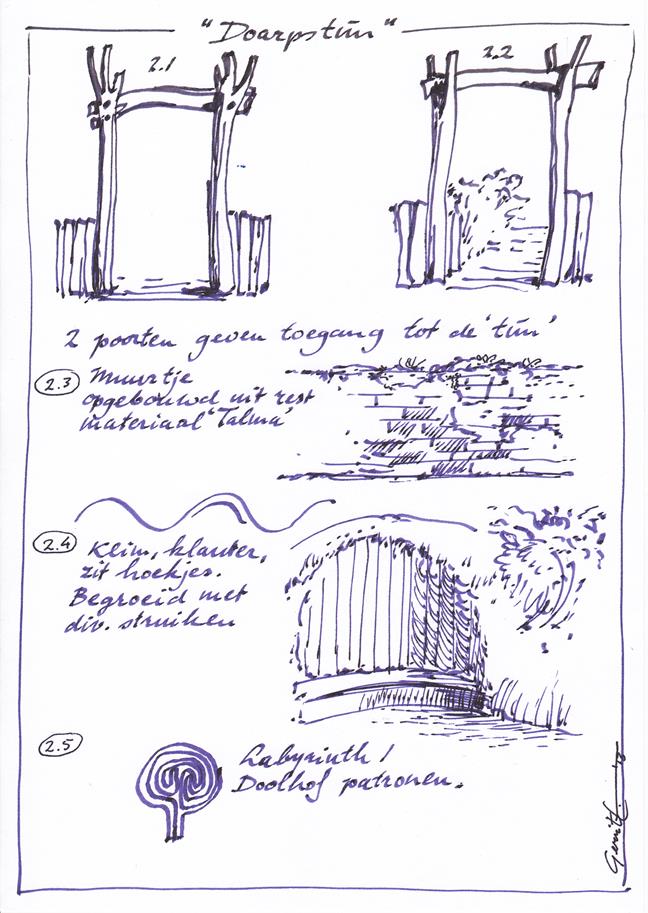 "Doarpstún"
2.1
2.2
2 poorten geven toegang tot de 'tún'
2.3 Muurtje
opgebouwd uit rest
materiaal 'Talma'
2.4 Klim, klauter,
zit hoekjes.
Begroeid met
div. struiken
2.5
Labyrinth /
Doolhof patronen.
Gerrit